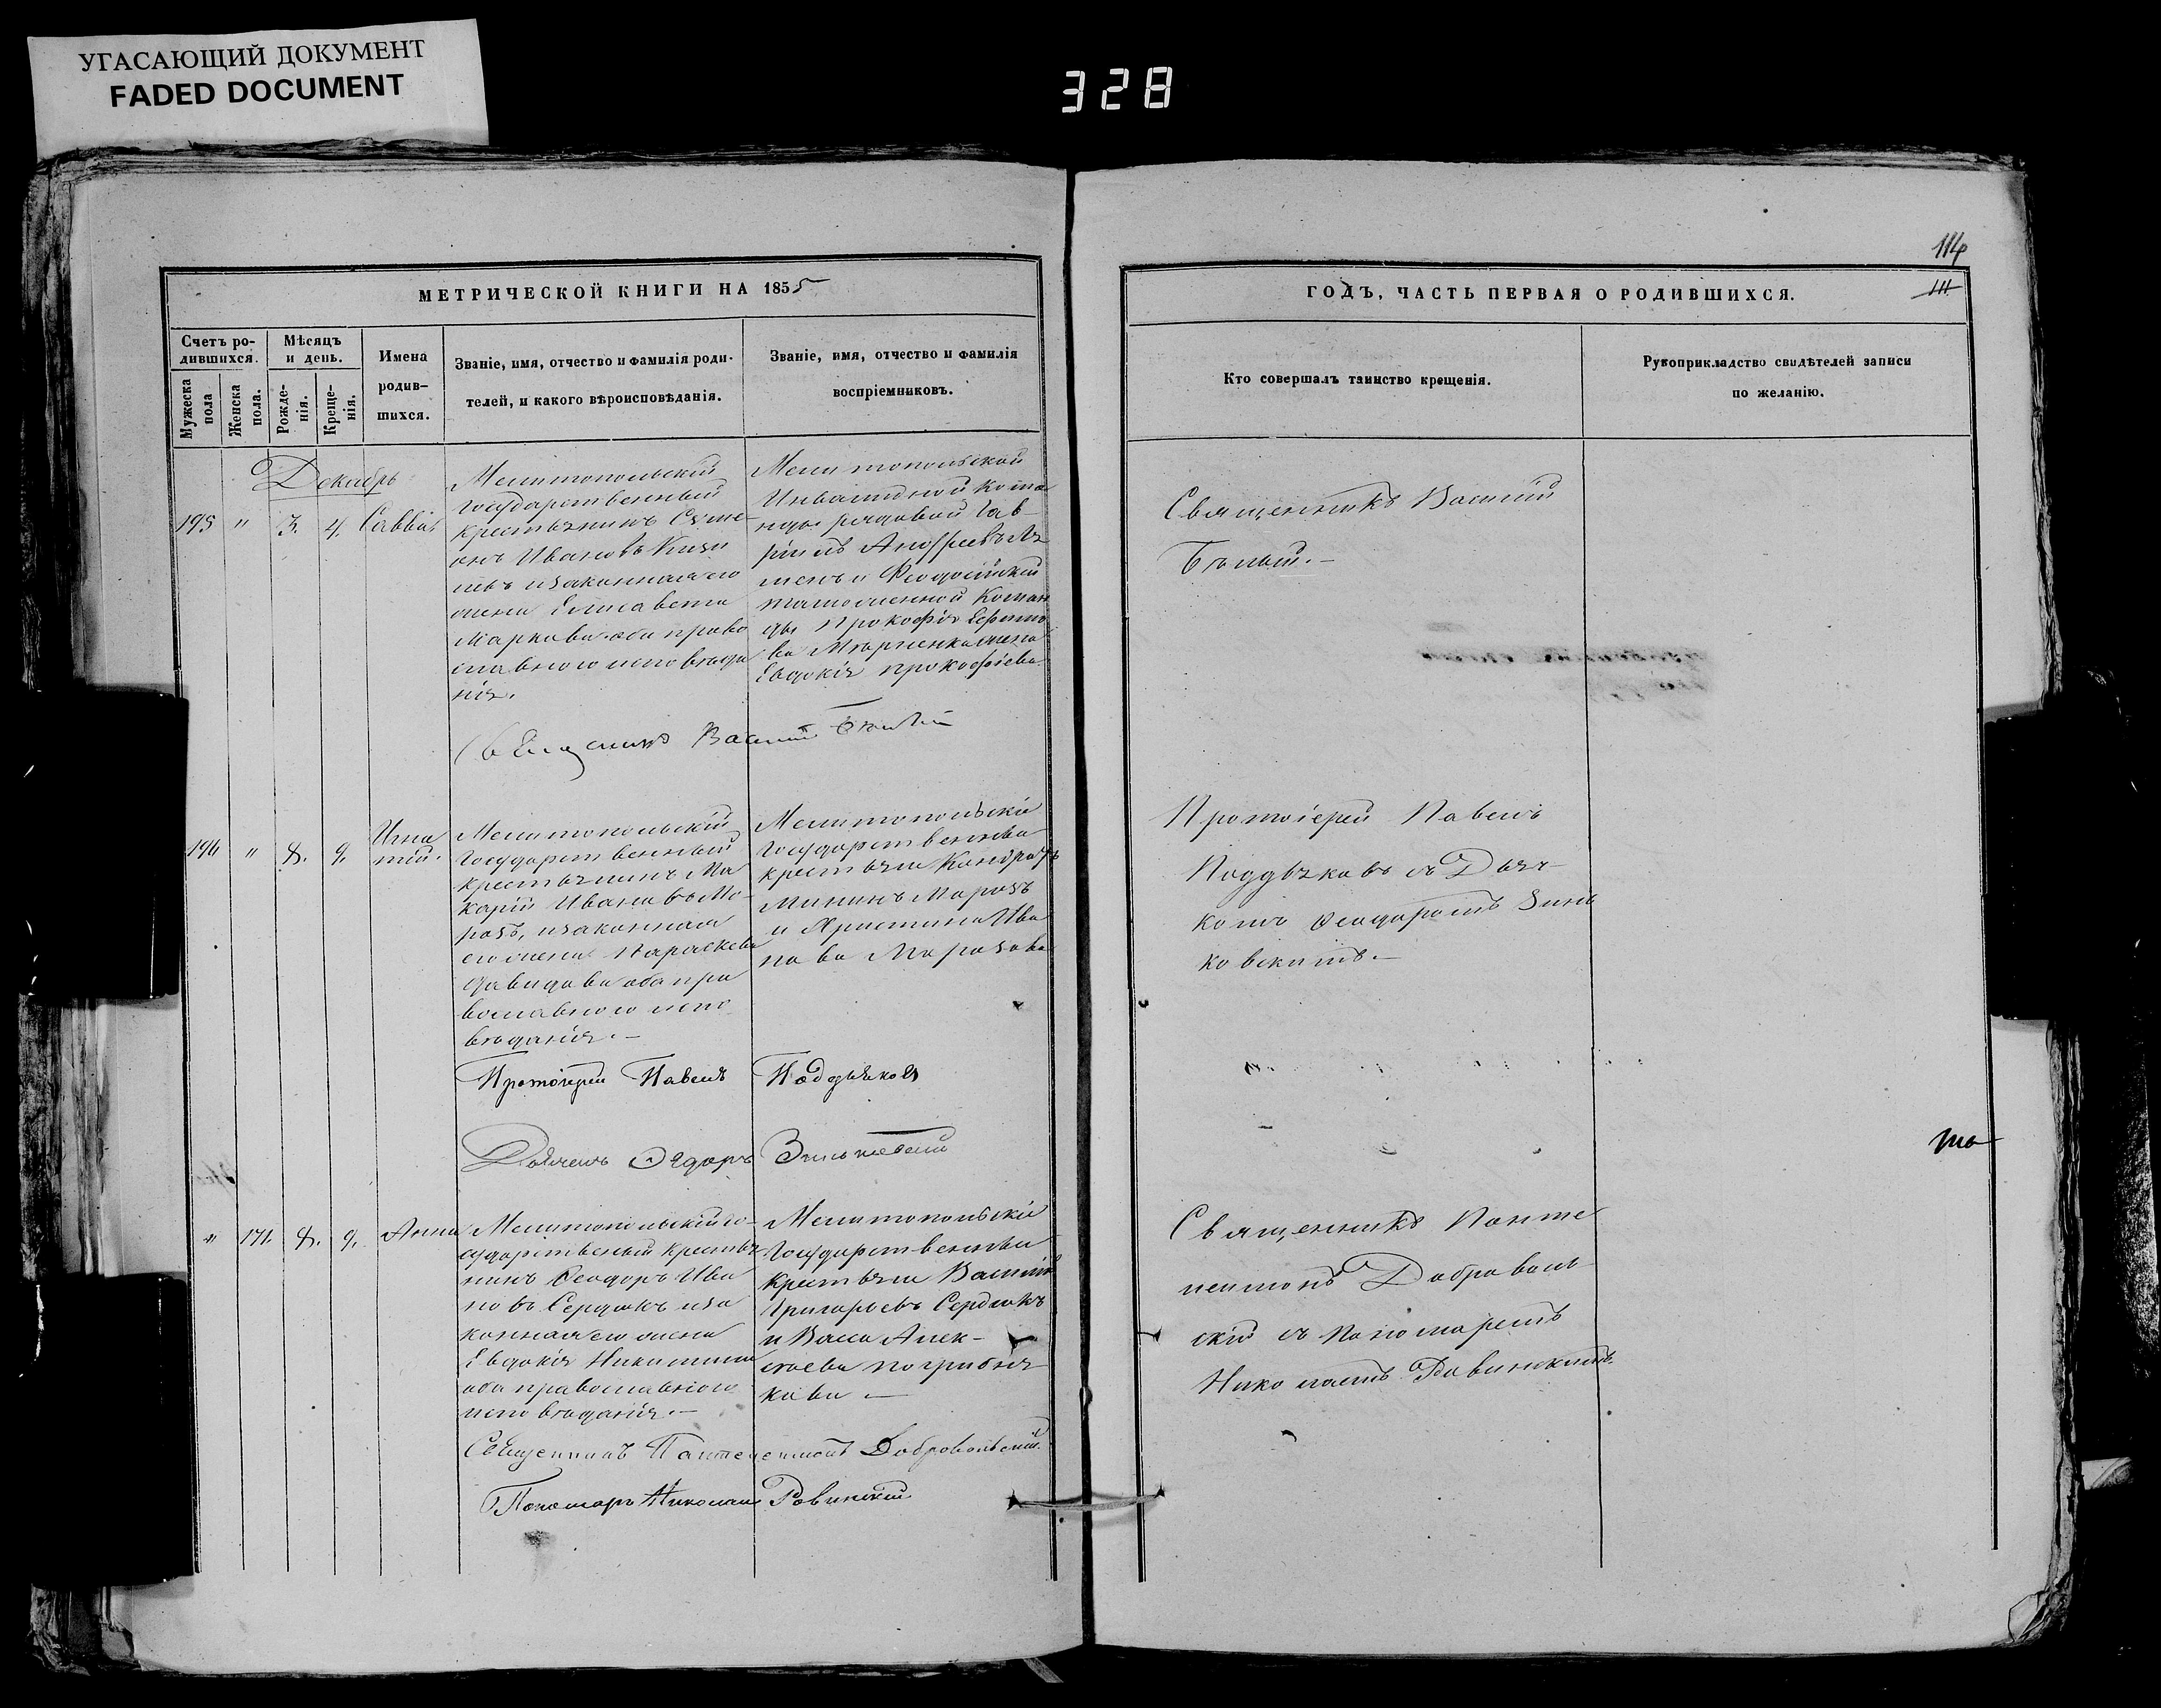 УГАСАЮЩИЙ ДОКУМЕНТ
FADED DOCUMENT
328
114
111
МЕТРИЧЕСКОЙ КНИГИ НА 1855
Счетъ ро-
дившихся.
Мужеска
пола
Женска
пола.
Мѣсяцъ
и день.
Рожде-
нія.
Креще-
нія.
Имена
родив-
шихся.
Званіе, имя, отчество и фамилія роди-
телей, и какого вѣроисповѣданія.
Званіе, имя, отчество и фамилія
воспріемниковъ.
Декабрь
195 " 3. 4. Савва
Мелитопольскій
государственный
крестьянинъ Симе-
онъ Ивановъ
и законная его
жена Елисавета
Маркова оба право
славного исповѣда
нія.
Мелитопольской
Инвалидной Кома-
нды рядовой Гав-
ріилъ Андреевъ
и Феодосійской
таможенной Коман
ды Прокофія Ефимо
ва жена
Евдокія Прокофіева
Священникъ Василій Бѣлый
194 " 8. 9. Игна
тій.
Мелитопольскій
государственный
крестьянинъ Ма
карій Ивановъ Мо-
розъ, и законная
его жена Параскева
Давидова оба пра
вославного испо
вѣданія.—
Мелитопольскіе
государственные
крестьяне Кондратъ
Мининъ Морозъ
и Христина Ива
нова Морозова
Протоіерей Павелъ Поддьяковъ
Дьячекъ Ѳедоръ Зиньковскій
" 171. 8. 9. Анна
Мелитопольскій го-
сударственый крестья
нинъ Ѳеодоръ Ива
новъ Сердюкъ и за
конная его жена
Евдокія Никитина
оба православного
исповѣданія.—
Мелитопольскіе
государственные
крестьяне Василій
Григорьевъ Сердюкъ
и Васса Алек-
сѣева Погрибня
кова —
Священникъ Пантелеимонъ Добровольскій
Пономарь Николай Ровинскій
ГОДЪ, ЧАСТЬ ПЕРВАЯ О РОДИВШИХСЯ.
Кто совершалъ таинство крещенія.
Рукоприкладство свидѣтелей записи
по желанію.
Священникъ Василій
Бѣлый.—
Протоіерей Павелъ
Поддьяковъ съ Дьяч-
комъ Ѳеодоромъ Зинь
ковскимъ.—
Священникъ Панте
леимонъ Доброволь
скій съ Пономаремъ
Николаемъ Ровинскимъ.